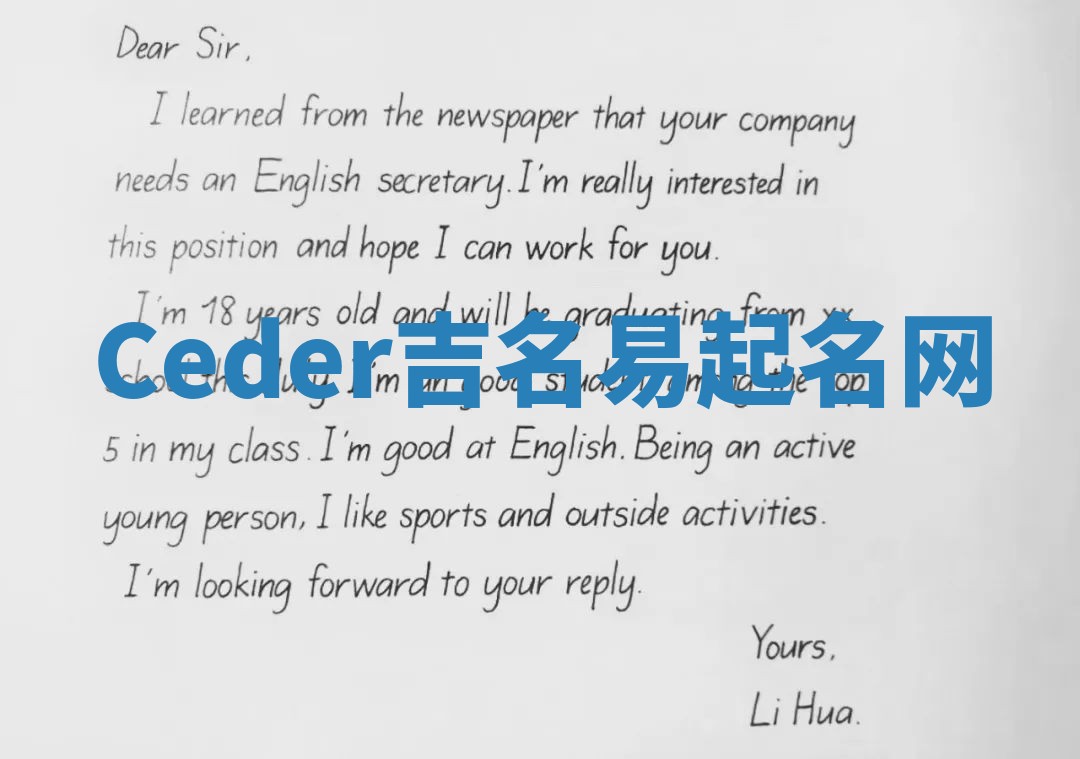 Dear Sir,
I learned from the newspaper that your company
needs an English secretary. I'm really interested in
this position and hope I can work for you.
I'm 18 years old and will be graduating from xx
Ceder吉名易起名网
school this July. I'm an good student among the top
5 in my class. I'm good at English. Being an active
young person, I like sports and outside activities.
I'm looking forward to your reply.
Yours,
Li Hua.